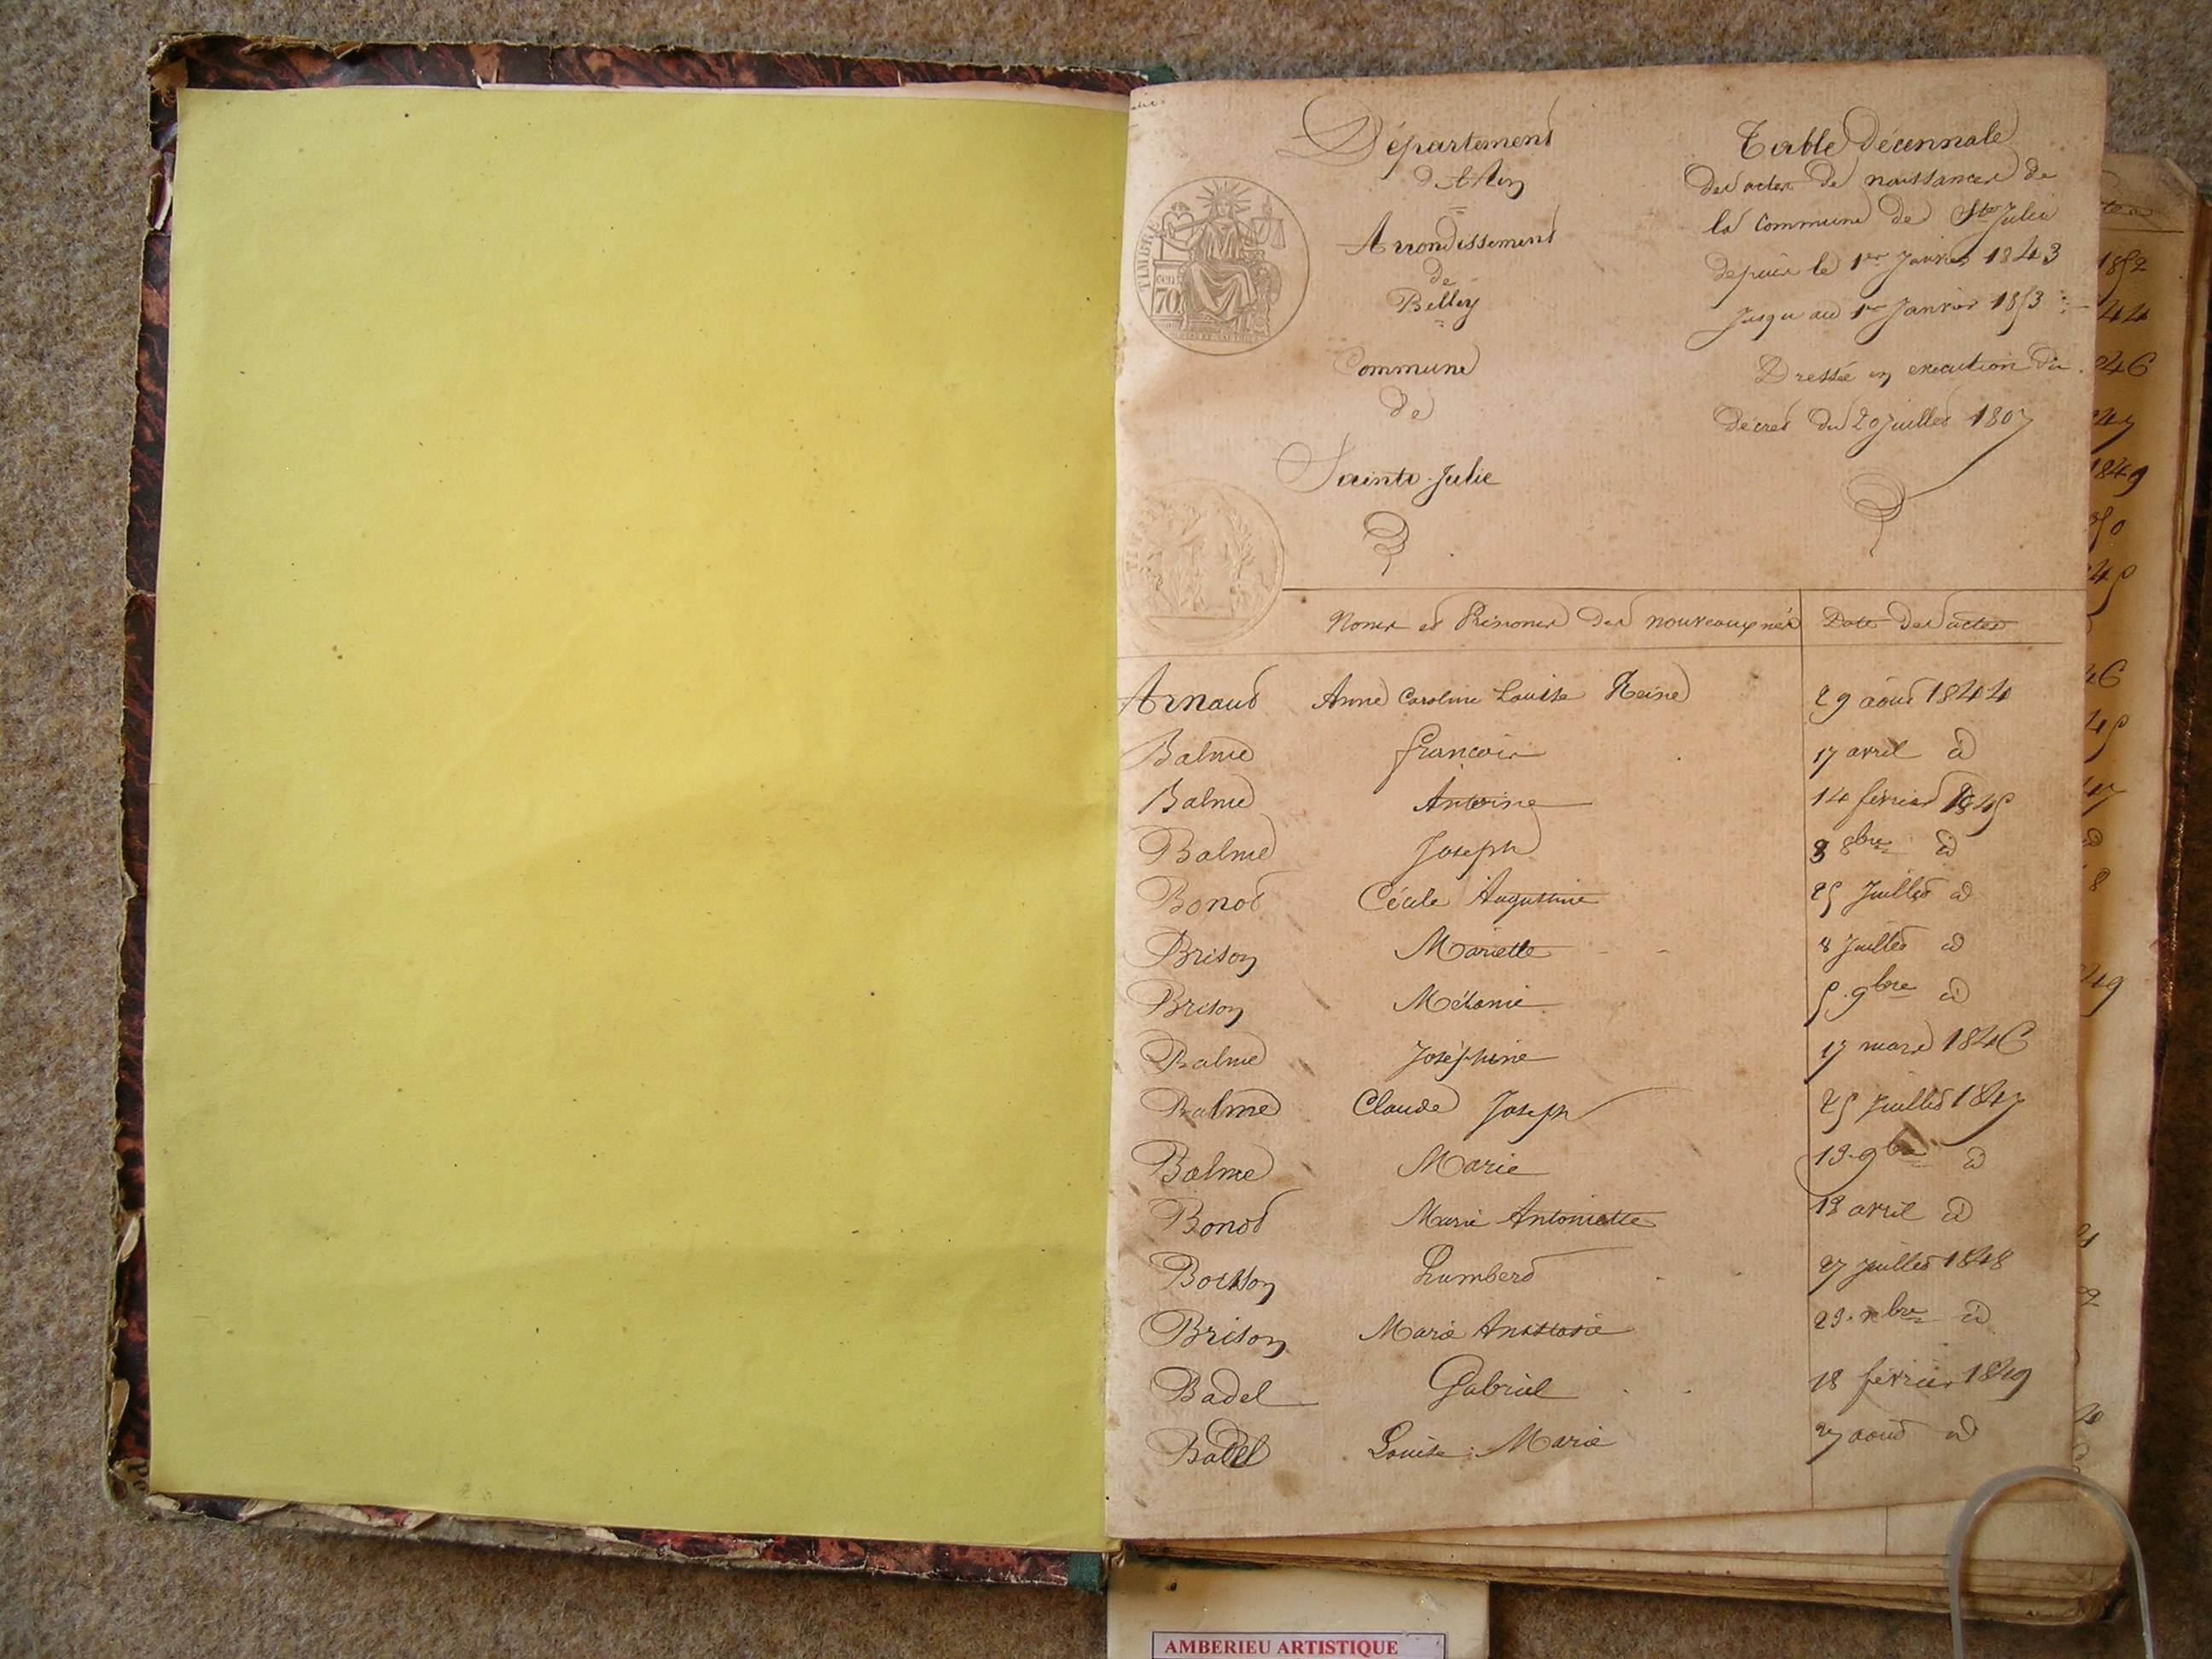 Département
de l'Ain
Arrondissement
de
Belley
Commune
de
Sainte Julie
Table Décennale
des actes de naissances de
la commune de Ste Julie
depuis le 1er Janvier 1843
Jusqu'au 1er Janvier 1853
Dressée en execution du
décret du 20 juillet 1807
TIMBRE
70
TIMBRE
Noms et Prénoms des nouveaux nés Date des actes
Arnaud Anne Caroline Louise Reine 29 aout 1844
Balme francois 17 avril id
Balme Antoine 14 février 1845
Balme Joseph 3 8bre id
Bonot Cécile Augustine 25 Juillet id
Brison Mariette 8 Juillet id
Brison Mélanie 5 9bre id
Balme Joséphine 17 mars 1846
Balme Claude Joseph 25 Juillet 1847
Balme Marie 13 9bre id
Bonot Marie Antoinette 13 avril id
Boisson Humbert 27 Juillet 1848
Brison Marie Anastasie 23 xbre id
Badel Gabriel 18 février 1849
Badel Louise Marie 27 aout id
1852
44
46
47
1849
50
45
46
45
47
id
8
49
AMBERIEU ARTISTIQUE